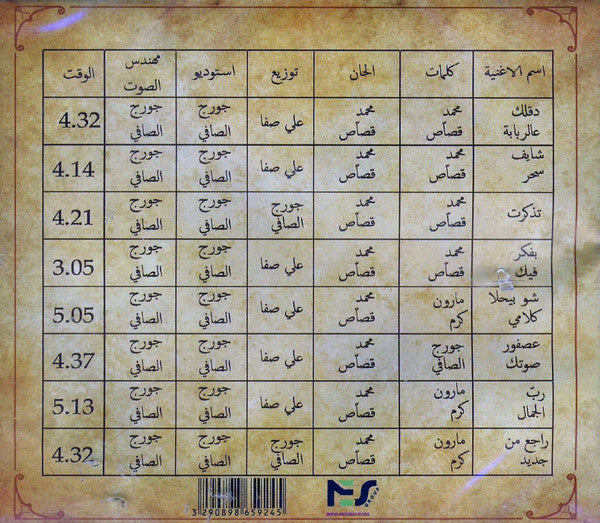 اسم الاغنية كلمات الحان توزيع استوديو مهندس الصوت الوقت
دقلك عالربابة محمد قصاّص محمد قصاّص علي صفا جورج الصافي جورج الصافي 4.32
شايف سحر محمد قصاّص محمد قصاّص علي صفا جورج الصافي جورج الصافي 4.14
تذكرت محمد قصاّص محمد قصاّص جورج الصافي جورج الصافي جورج الصافي 4.21
بفكر فيك محمد قصاّص محمد قصاّص علي صفا جورج الصافي جورج الصافي 3.05
شو بيحلا كلامي مارون كرم محمد قصاّص علي صفا جورج الصافي جورج الصافي 5.05
عصفور صوتك جورج الصافي محمد قصاّص علي صفا جورج الصافي جورج الصافي 4.37
ربّ الجمال مارون كرم محمد قصاّص علي صفا جورج الصافي جورج الصافي 5.13
راجع من جديد مارون كرم محمد قصاّص جورج الصافي جورج الصافي جورج الصافي 4.32
GROUP
3 290898 659245